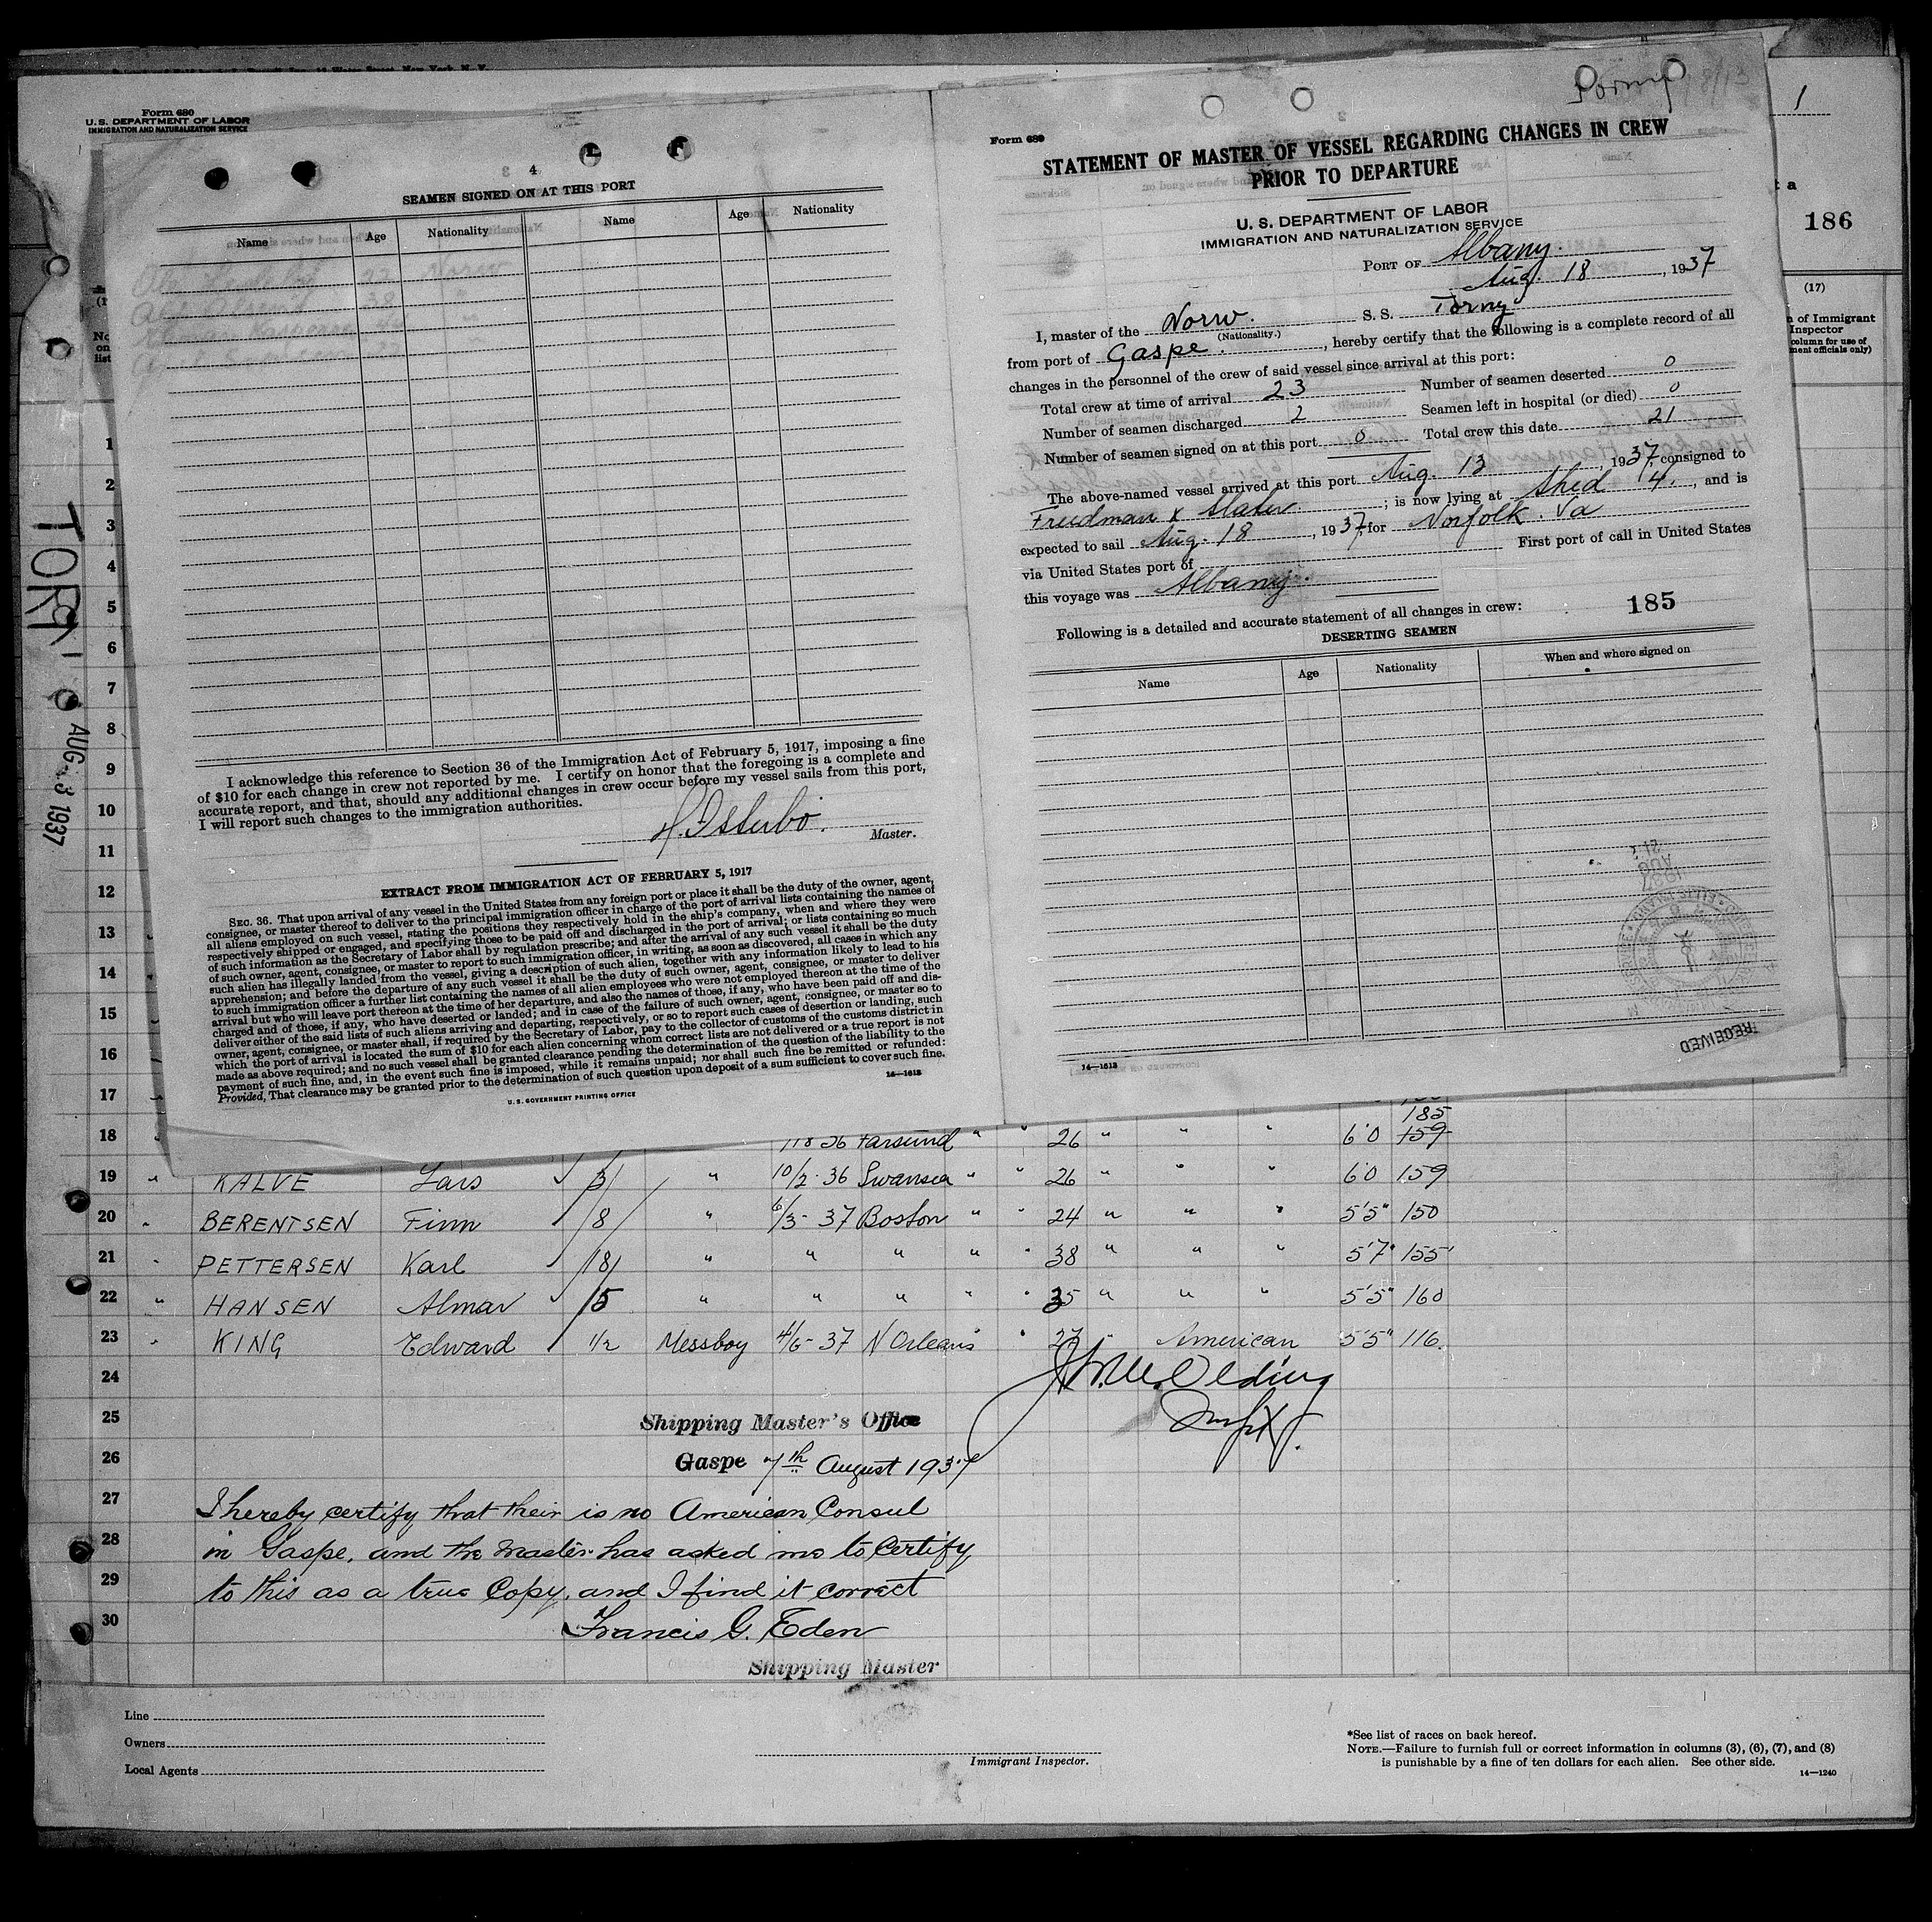 Form 680
U. S. DEPARTMENT OF LABOR
IMMIGRATION AND NATURALIZATION SERVICE
4
SEAMEN SIGNED ON AT THIS PORT
Name Age Nationality Name Age Nationality
I acknowledge this reference to Section 36 of the Immigration Act of February 5, 1917, imposing a fine
of $10 for each change in crew not reported by me. I certify on honor that the foregoing is a complete and
accurate report, and that, should any additional changes in crew occur before my vessel sails from this port,
I will report such changes to the immigration authorities.
Master.
EXTRACT FROM IMMIGRATION ACT OF FEBRUARY 5, 1917
SEC. 36. That upon arrival of any vessel in the United States from any foreign port or place it shall be the duty of the owner, agent,
consignee, or master thereof to deliver to the principal immigration officer in charge of the port of arrival lists containing the names of
all aliens employed on such vessel, stating the positions they respectively hold in the ship's company, when and where they were
respectively shipped or engaged, and specifying those to be paid off and discharged in the port of arrival; or lists containing so much
of such information as the Secretary of Labor shall by regulation prescribe; and after the arrival of any such vessel it shall be the duty
of such owner, agent, consignee, or master to report to such immigration officer, in writing, as soon as discovered, all cases in which any
such alien has illegally landed from the vessel, giving a description of such alien, together with any information likely to lead to his
apprehension; and before the departure of any such vessel it shall be the duty of such owner, agent, consignee, or master to deliver
to such immigration officer a further list containing the names of all alien employees who were not employed thereon at the time of the
arrival but who will leave port thereon at the time of her departure, and also the names of those, if any, who have been paid off and dis-
charged and of those, if any, who have deserted or landed; and in case of the failure of such owner, agent, consignee, or master so to
deliver either of the said lists of such aliens arriving and departing, respectively, or so to report such cases of desertion or landing, such
owner, agent, consignee, or master shall, if required by the Secretary of Labor, pay to the collector of customs of the customs district in
which the port of arrival is located the sum of $10 for each alien concerning whom correct lists are not delivered or a true report is not
made as above required; and no such vessel shall be granted clearance pending the determination of the question of the liability to the
payment of such fine, and, in the event such fine is imposed, while it remains unpaid; nor shall such fine be remitted or refunded:
Provided, That clearance may be granted prior to the determination of such question upon deposit of a sum sufficient to cover such fine.
14—1613
U. S. GOVERNMENT PRINTING OFFICE
Torny 8/13
Form 680
STATEMENT OF MASTER OF VESSEL REGARDING CHANGES IN CREW
PRIOR TO DEPARTURE
U. S. DEPARTMENT OF LABOR
IMMIGRATION AND NATURALIZATION SERVICE
PORT OF Albany.
Aug. 18, 1937
I, master of the Norw. S. S. Torny
(Nationality.)
from port of Gaspe., hereby certify that the following is a complete record of all
changes in the personnel of the crew of said vessel since arrival at this port:
Total crew at time of arrival 23 Number of seamen deserted 0
Number of seamen discharged 2 Seamen left in hospital (or died) 0
Number of seamen signed on at this port 0 Total crew this date 21
The above-named vessel arrived at this port Aug. 13, 1937, consigned to
Freedman & Slater; is now lying at Shed 14., and is
expected to sail Aug. 18, 1937, for Norfolk. Va
via United States port of First port of call in United States
this voyage was Albany.
Following is a detailed and accurate statement of all changes in crew: 185
DESERTING SEAMEN
Name Age Nationality When and where signed on
RECEIVED
14—1613
1
186
(17)
n of Immigrant
Inspector
column for use of
ment officials only)
AUG 13 1937
1
2
3
4
5
6
7
8
9
10
11
12
13
14
15
16
17
185
18 Farsund " " 26 " " " 6'0 159
19 " KALVE Lars 3 " 10/2-36 Swansea " " 26 " " " 6'0 159
20 " BERENTSEN Finn 8 " 6/3-37 Boston " " 24 " " " 5'5" 150
21 " PETTERSEN Karl 18 " " " " " 38 " " " 5'7" 155
22 " HANSEN Almar 15 " " " " " 35 " " " 5'5" 160
23 " KING Edward 1/2 Messboy 4/6-37 N Orleans " 27 " American 5'5" 116.
24
25 Shipping Master's Office
26 Gaspe 7th August 1937
27 I hereby certify that their is no American Consul
28 in Gaspe, and the Master has asked me to Certify
29 to this as a true Copy, and I find it correct
30 Francis G. Eden
Shipping Master
Line
Owners
Local Agents
Immigrant Inspector.
*See list of races on back hereof.
NOTE.—Failure to furnish full or correct information in columns (3), (6), (7), and (8)
is punishable by a fine of ten dollars for each alien. See other side.
14—1240